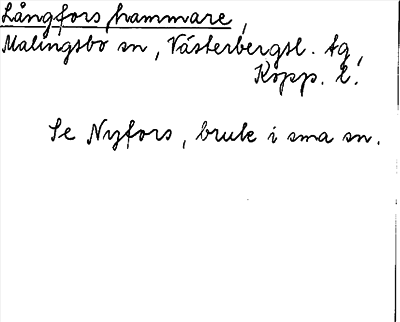 Långfors hammare,
Malingsbo sn, Västerbergsl. tg,
Kopp. l.
Se Nyfors, bruk i sma sn.